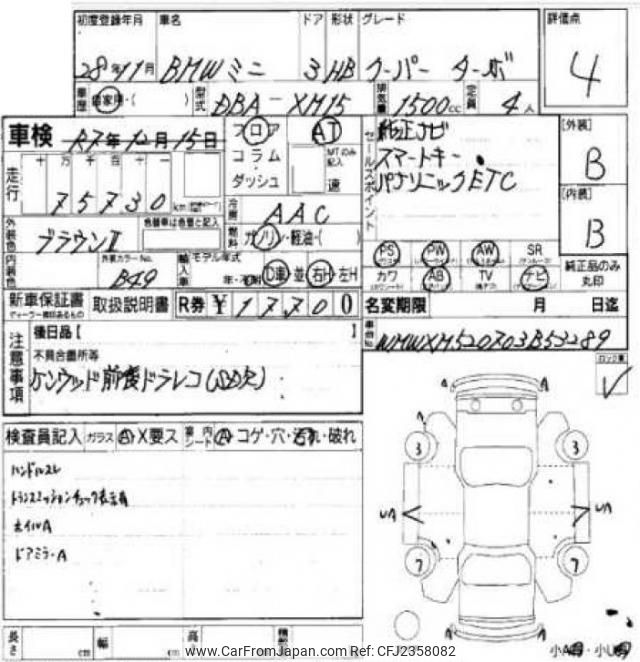 初度登録年月 車名 ドア 形状 グレード 評価点
28年11月 BMWミニ 3 HB クーパー ターボ 4
車歴 自家用・( ) 型式 DBA-XM15 排気量 1500cc 定員 4人
車検 R7年12月15日 フロア AT セールスポイント 純正ナビ [外装]
コラム MTのみ記入 スマートキー B
走行 十万千百十一 ダッシュ 速 パナソニックETC
75730 km 冷房 AAC [内装]
外装色 ブラウンⅡ 色替車は色替と記入 燃料 ガソリン・軽油・( ) B
内装色 外装カラーNo. B49 輸入車 モデル年式 年・不明 D車 並 右H・左H
PS PW AW SR
カワ AB TV ナビ 純正品のみ丸印
新車保証書 取扱説明書 R券 ¥17700 名変期限 月 日迄
ディーラー捺印あるもの
後日品【 】 車台No. WMWXM520703B53289
注意事項 不具合箇所等
ケンウッド前後ドラレコ(SD欠)
検査員記入 ガラス A X要ス 室内シート A コゲ・穴・汚れ・破れ
ハンドルスレ
トランスミッションチェック表示有
ホイルA
ドアミラーA
A A
3 3
UA UA
7 7
長さ cm 幅 cm 高
小A 小U
www.CarFromJapan.com Ref: CFJ2358082